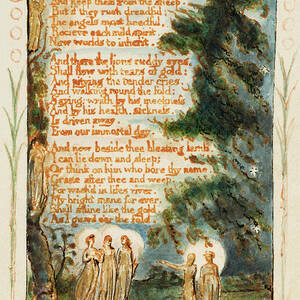 And keep them from the sheep
But if they rush dreadful;
The angels most heedful,
Recieve each mild spirit
New worlds to inherit.
And there the lions ruddy eyes,
Shall flow with tears of gold:
And pitying the tender cries,
And walking round the fold:
Saying: wrath by his meekness
And by his health, sickness,
Is driven away,
From our immortal day.
And now beside thee bleating lamb,
I can lie down and sleep;
Or think on him who bore thy name,
Grase after thee and weep.
For wash'd in lifes river,
My bright mane for ever,
Shall shine like the gold,
As I guard o'er the fold.